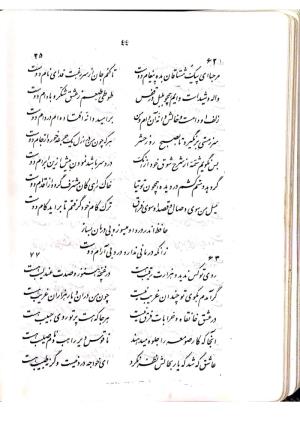 ۴۴
۶۲ ۲۵
مرحبا ای پیک مشتاقان بده پیغام دوست تا کنم جان از سر رغبت فدای نام دوست
واله و شیداست دایم همچو بلبل در قفس طوطی طبعم ز عشق شکر و بادام دوست
زلف او دامست و خالش دانه آن دام و من بر امید دانه افتاده‌ام در دام دوست
سر ز مستی برنگیرد تا بصبح روز حشر هر که چون من در ازل یک جرعه خورد از جام دوست
بس نگویم شمه از شرح شوق خود از آنک دردسر باشد نمودن بیش ازین ابرام دوست
گر دهد دستم کشم در دیده همچون توتیا خاک راهی کان مشرف گردد از اقدام دوست
میل من سوی وصال و قصد او سوی فراق ترک کام خود گرفتم تا برآید کام دوست
حافظ اندر درد او میسوز و بی درمان بساز
زانکه درمانی ندارد درد بی آرام دوست
۶۳ ۷۷
روی تو کس ندید و هزارت رقیب هست در غنچه هنوز و صدت عندلیب هست
گر آمدم بکوی تو چندان غریب نیست چون من در آن دیار هزاران غریب هست
در عشق خانقاه و خرابات فرق نیست هر جا که هست پرتو روی حبیب هست
آنجا که کار صومعه را جلوه میدهند ناقوس دیر راهب و نام صلیب هست
عاشق که شد که یار بحالش نظر نکرد ای خواجه درد نیست وگرنه طبیب هست